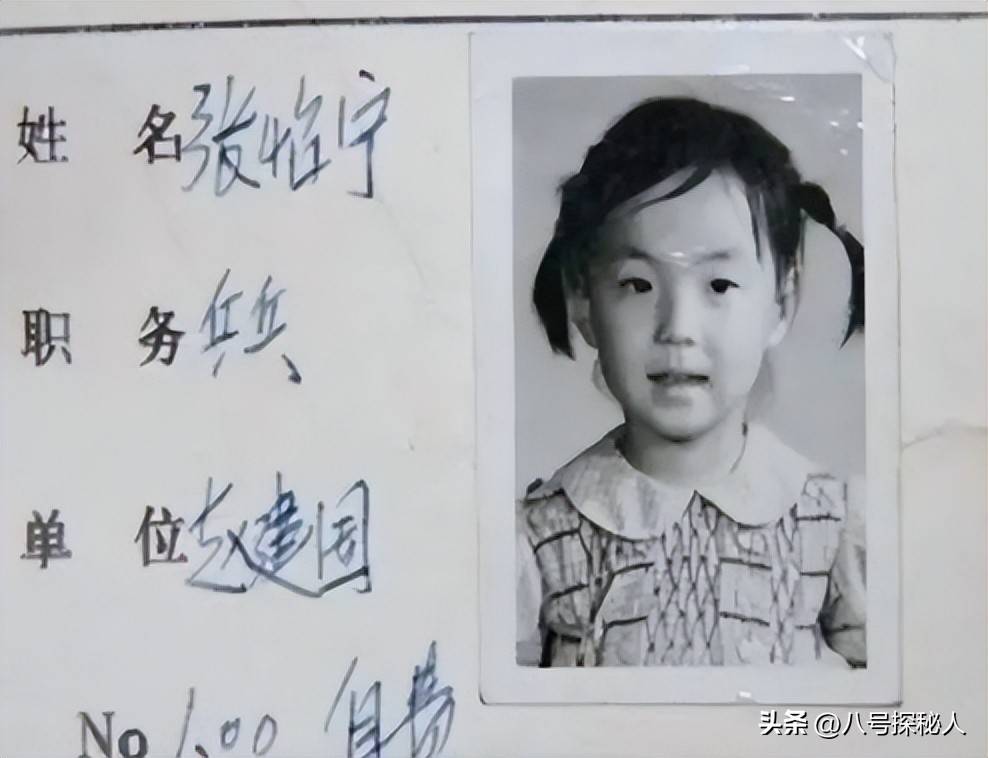 姓 名 张怡宁
职 务 乒乓
单 位 赵建国
No 1.00 自费
头条 @八号探秘人